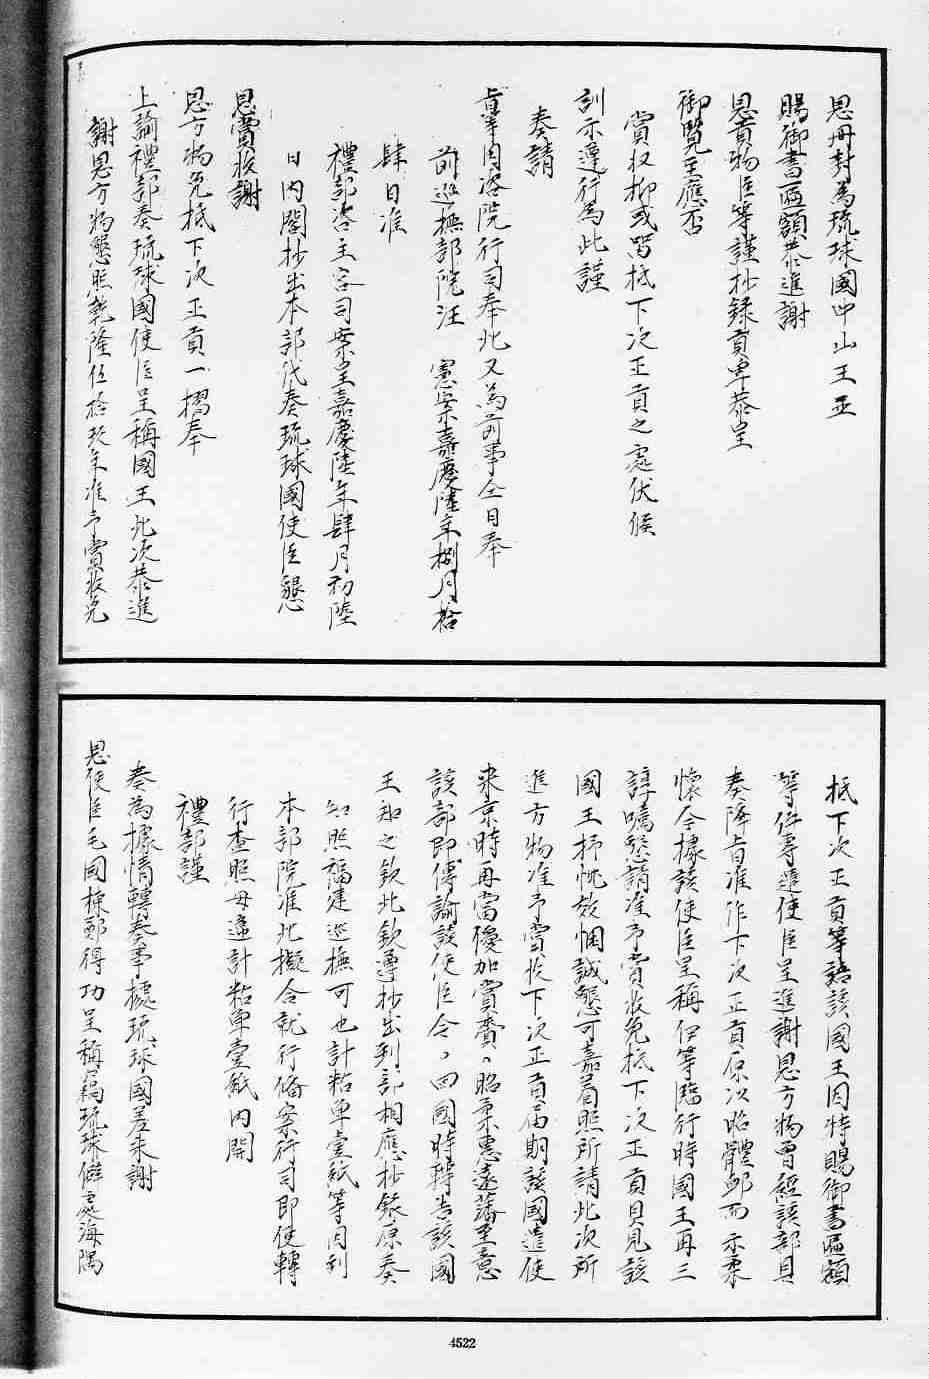 恩冊封為琉球國中山王並
賜御書匾額恭進謝
恩貢物臣等謹抄錄貢單恭呈
御覽至應否
賞收抑或留抵下次正貢之處伏候
訓示遵行為此謹
奏請
旨等因咨院行司奉此又為前事仝日奉
前巡撫部院汪　憲案嘉慶陸年捌月拾
肆日准
禮部咨主客司案呈嘉慶陸年肆月初陸
日內閣抄出本部代奏琉球國使臣懇
恩賞收謝
恩方物免抵下次正貢一摺奉
上諭禮部奏琉球國使臣呈稱國王此次恭進
謝恩方物懇照乾隆伍拾玖年准予賞收免
抵下次正貢等語該國王因特賜御書匾額
等件專遣使臣呈進謝恩方物曾經該部具
奏降旨准作下次正貢原次昭體卹而示柔
懷今據該使臣呈稱伊等臨行時國王再三
諄囑懇請准予賞收免抵下次正貢具見該
國王抒忱效悃誠懇可嘉著照所請此次所
進方物准予賞收下次正貢屆期該國遣使
來京時再當優加賞賚、昭柔惠遠藩至意
該部即傳諭該使臣令、回國時轉告該國
王知之欽此欽遵抄出到部相應抄錄原奏
知照福建巡撫可也計粘單壹紙等因到
本部院准此擬合就行備案行司即便轉
行查照毋違計粘單壹紙內開
禮部謹
奏為據情轉奏事據琉球國差來謝
恩使臣毛國棟鄭得功呈稱竊琉球僻處海隅
4522